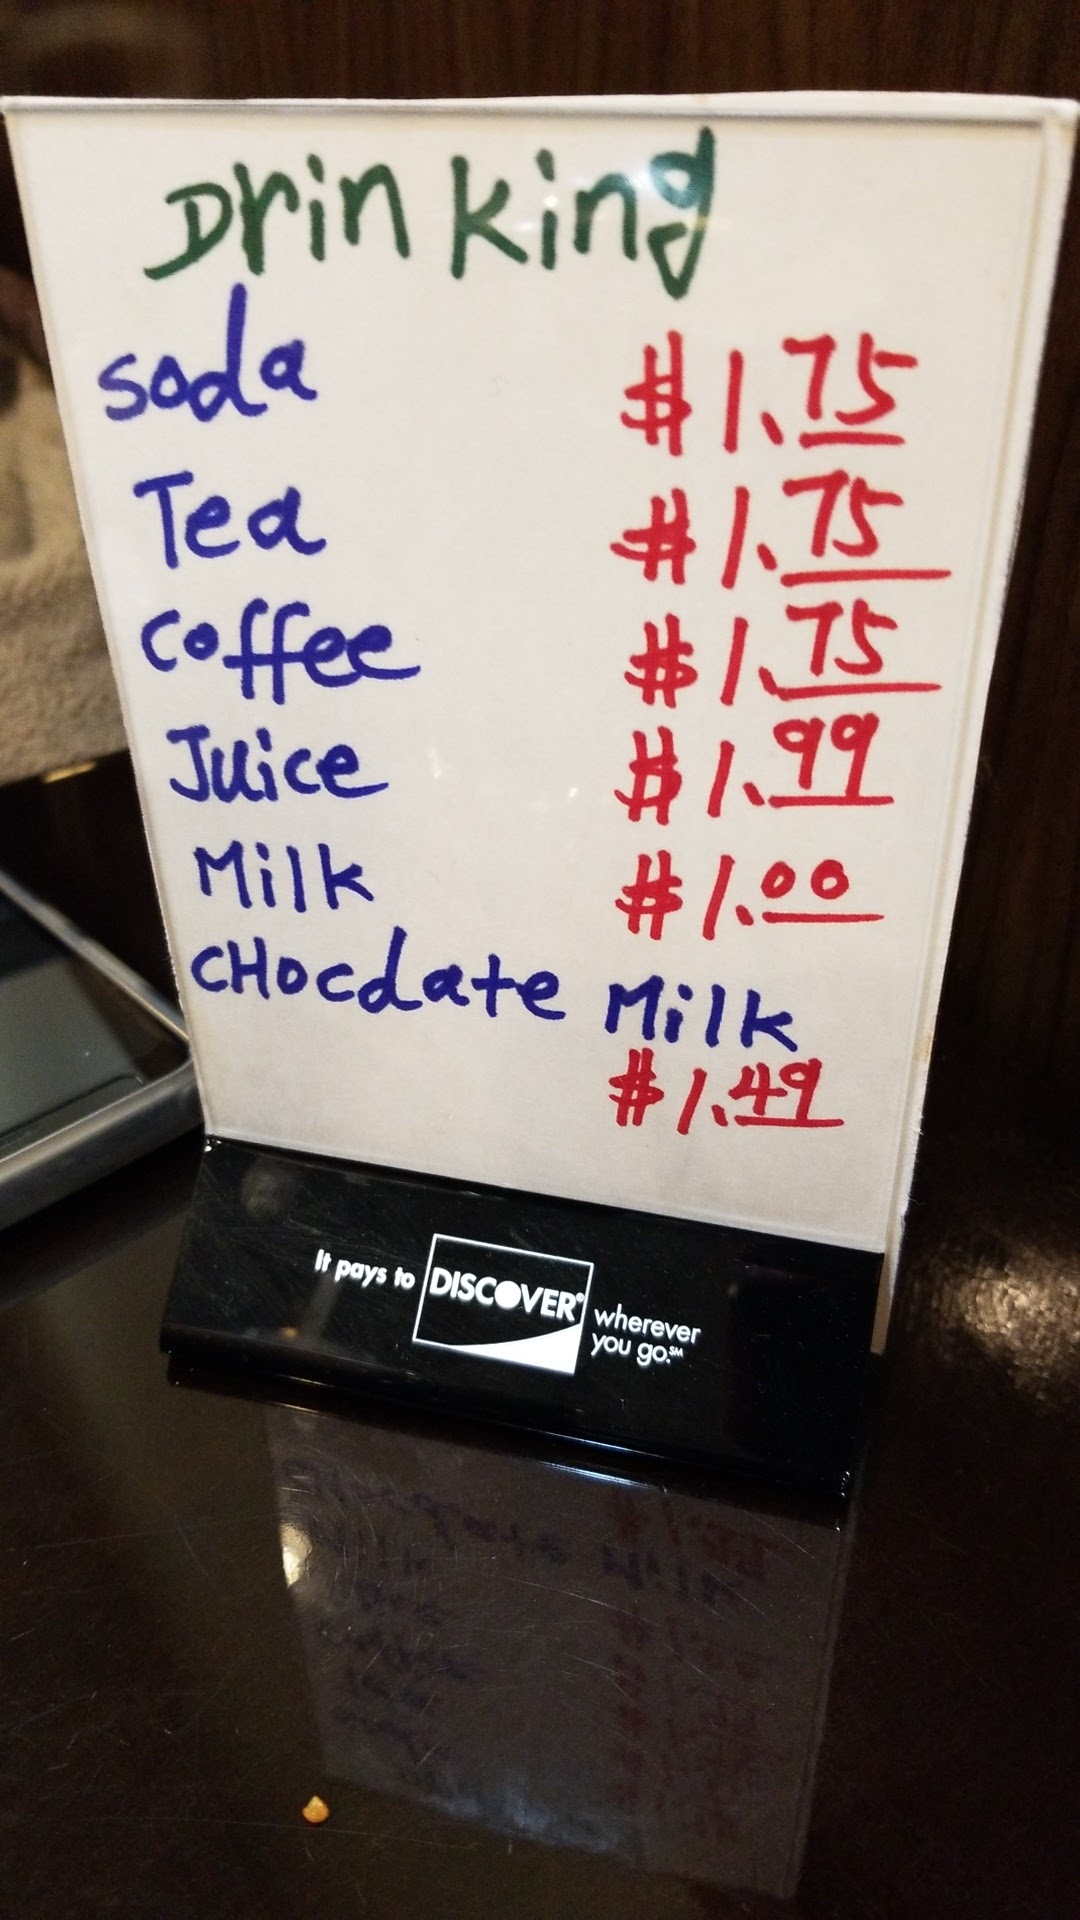 Drinking
soda $1.75
Tea $1.75
coffee $1.75
Juice $1.99
Milk $1.00
cHocdate Milk
$1.49
It pays to DISCOVER® wherever
you go.SM